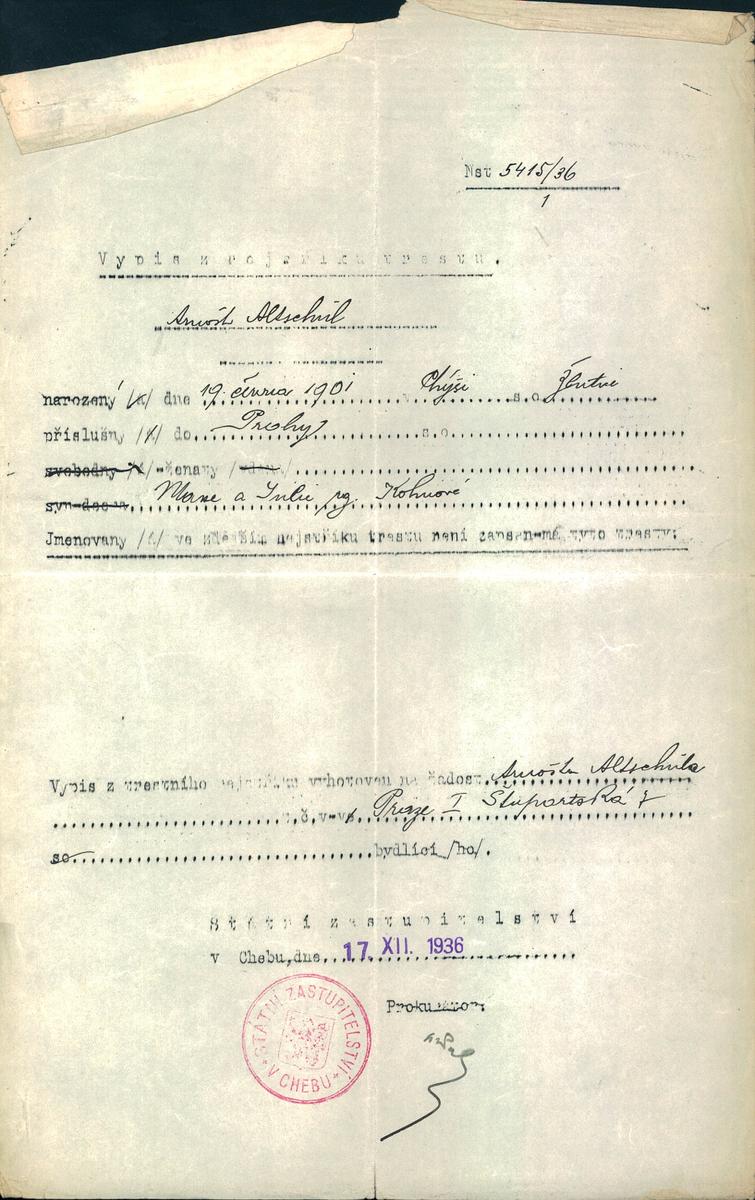 Nst 5415/36
1
Výpis z rejstříku trestů.
Arnošt Altschul
narozený /á/ dne 19. června 1901 v Chýši s.o. Žlutice
příslušný /á/ do Prahy s.o.
svobodný /á/-ženatý /
syn-dcera Maxe a Julie roz. Kohnové
Jmenovaný /á/ ve zdejším rejstříku trestů není zapsán-má tyto tresty:
Výpis z trestního rejstříku vyhotoven na žádost Arnošta Altschula
č. v-ve Praze I Štupartská 7
so bydlící /ho/.
Státní zastupitelství
v Chebu, dne 17. XII. 1936
Prokurátor:
STÁTNÍ ZASTUPITELSTVÍ V CHEBU